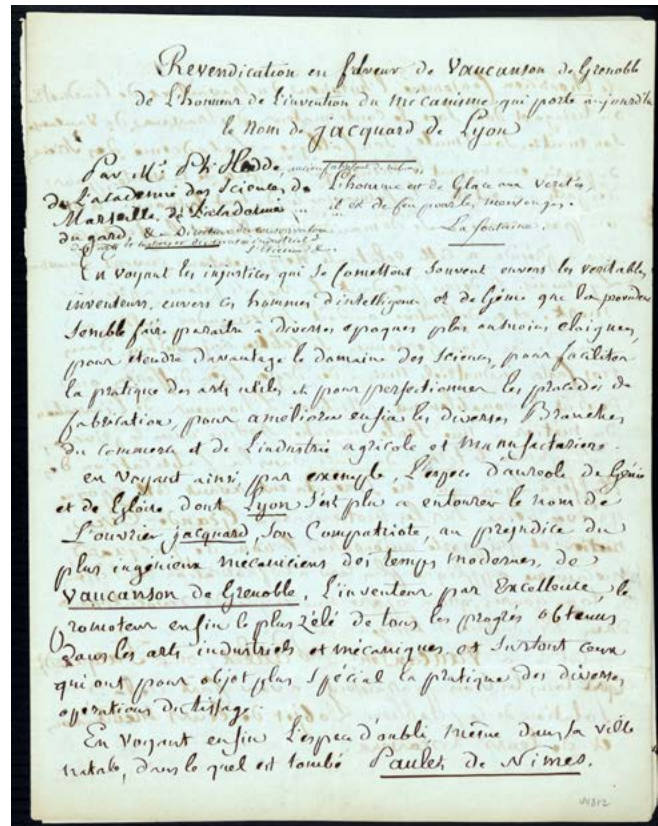 Revendication en faveur de Vaucanson de Grenoble
de L'honneur de L'invention du mecanisme qui porte aujourd'hui
le nom de jacquard de Lyon
Par Mr. Ph. Hedde,
de L'academie des Sciences de L'homme est de Glace aux verités,
Marseille, de L'academie il est de feu pour les mensonges.
du gard, La fontaine.
En voyant les injustices qui se Comettent Souvent envers les veritables
inventeurs, envers ces hommes d'intelligence et de Génie que la
Semble faire paraitre a diverses epoques plus ou moins eloignées,
pour etendre davantage le domaine des Sciences, pour faciliter
la pratique des arts utiles et pour perfectionner les procédés de
fabrication, pour ameliorer enfin les diverses Branches
du commerce et de L'industrie agricole et manufacturiere.
en voyant ainsi, par exemple, L'espece d'aureole de Génie
et de Gloire dont Lyon s'est plu a entourer le nom de
L'ouvrier jacquard, Son Compatriote, au prejudice du
plus ingenieux mécaniciens des temps modernes, de
Vaucanson de Grenoble, L'inventeur par Excellence, le
promoteur enfin le plus zélé de tous les progrès obtenus
dans les arts industriels et mécaniques, et Surtout ceux
qui ont pour objet plus Spécial la pratique des diverses
operations du tissage.
En Voyant enfin L'espece d'oubli, même dans sa ville
natale, dans le quel est tombé Paulet de Nimes.